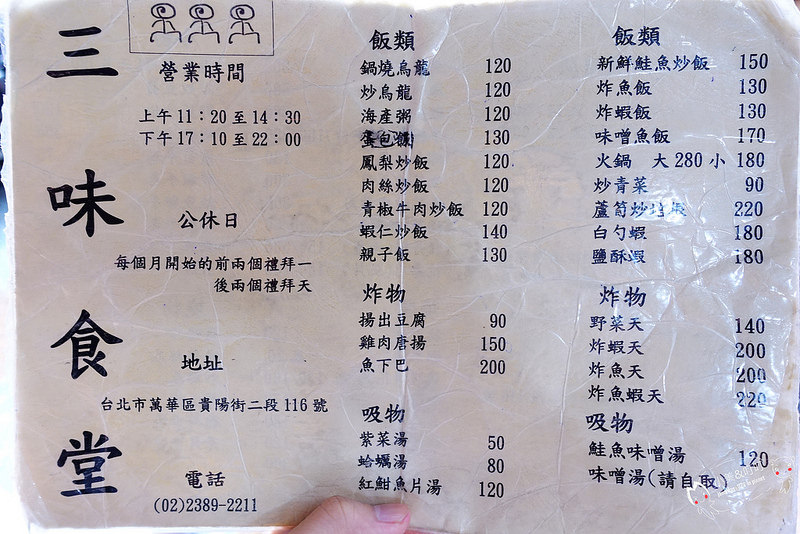 三味食堂
營業時間
上午11：20至14：30
下午17：10至22：00
公休日
每個月開始的前兩個禮拜一
後兩個禮拜天
地址
台北市萬華區貴陽街二段116號
電話
(02)2389-2211
飯類
鍋燒烏龍 120
炒烏龍 120
海產粥 120
蛋包飯 130
鳳梨炒飯 120
肉絲炒飯 120
青椒牛肉炒飯 120
蝦仁炒飯 140
親子飯 130
炸物
揚出豆腐 90
雞肉唐揚 150
魚下巴 200
吸物
紫菜湯 50
蛤蠣湯 80
紅魽魚片湯 120
飯類
新鮮鮭魚炒飯 150
炸魚飯 130
炸蝦飯 130
味噌魚飯 170
火鍋 大280小180
炒青菜 90
蘆筍炒 220
白勺蝦 180
鹽酥蝦 180
炸物
野菜天 140
炸蝦天 200
炸魚天 200
炸魚蝦天 220
吸物
鮭魚味噌湯 120
味噌湯(請自取)